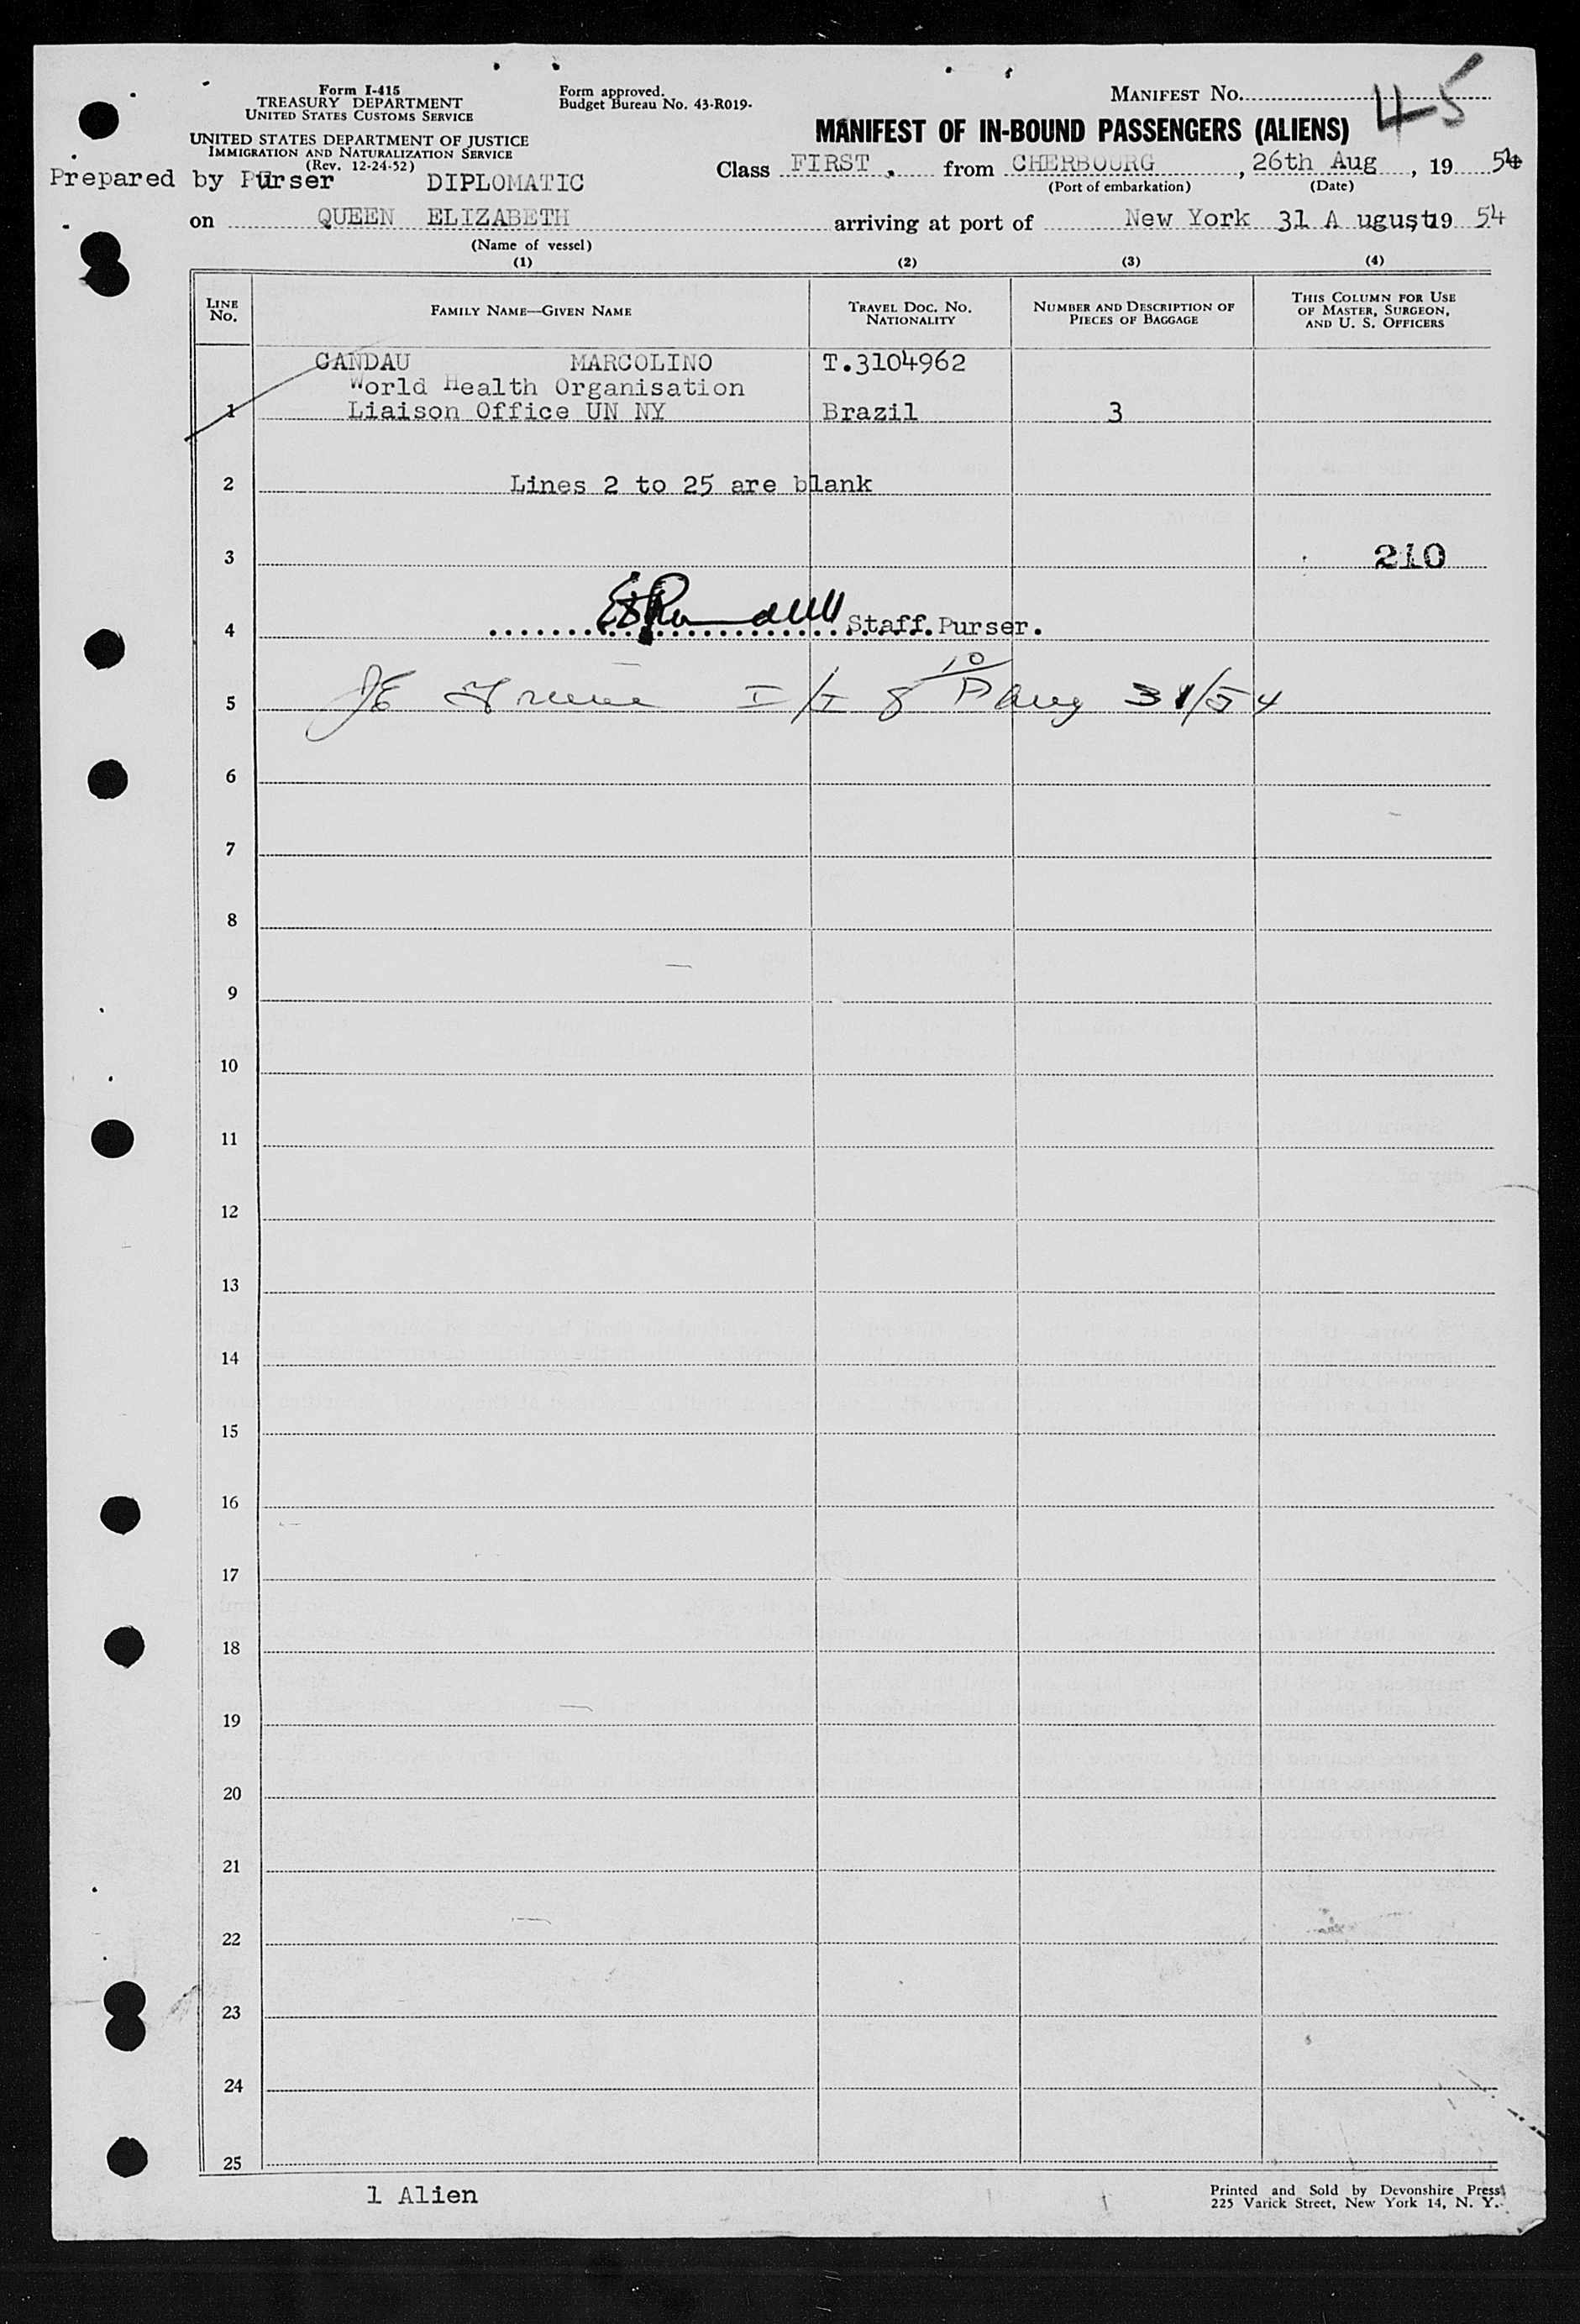 Form I-415
TREASURY DEPARTMENT
UNITED STATES CUSTOMS SERVICE
UNITED STATES DEPARTMENT OF JUSTICE
IMMIGRATION AND NATURALIZATION SERVICE
(Rev. 12-24-52)
Form approved.
Budget Bureau No. 43-R019.
MANIFEST NO. 45
MANIFEST OF IN-BOUND PASSENGERS (ALIENS)
Class FIRST, from CHERBOURG, 26th Aug, 19 54
(Port of embarkation) (Date)
Prepared by Purser DIPLOMATIC
on QUEEN ELIZABETH arriving at port of New York 31 A ugust, 19 54
(Name of vessel)
(1) (2) (3) (4)
LINE NO.
FAMILY NAME—GIVEN NAME
TRAVEL DOC. NO.
NATIONALITY
NUMBER AND DESCRIPTION OF
PIECES OF BAGGAGE
THIS COLUMN FOR USE
OF MASTER, SURGEON,
AND U. S. OFFICERS
CANDAU MARCOLINO T.3104962
World Health Organisation
1 Liaison Office UN NY Brazil 3
2 Lines 2 to 25 are blank
3 210
4 Staff Purser.
5 I/I 8 10 Aug 31/54
6
7
8
9
10
11
12
13
14
15
16
17
18
19
20
21
22
23
24
25
1 Alien
Printed and Sold by Devonshire Press
225 Varick Street, New York 14, N. Y.